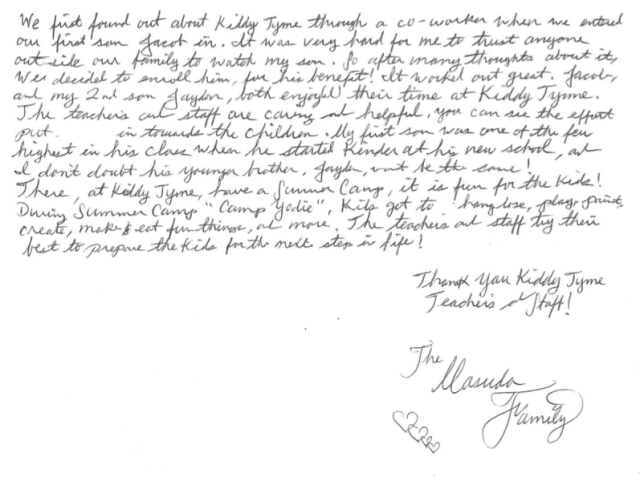 We first found out about Kiddy Tyme through a co-worker when we entered
our first son Jacob in. It was very hard for me to trust anyone
out-side our family to watch my son. So after many thoughts about it,
We decided to enroll him, for his benefit! It worked out great. Jacob,
and my 2nd son Jayden, both enjoyed their time at Kiddy Tyme.
The teachers and staff are caring and helpful, you can see the effort
put in towards the children. My first son was one of the few
highest in his class when he started Kinder at his new school, and
I don't doubt his younger brother, Jayden, won't be the same!
There, at Kiddy Tyme, have a Summer Camp, it is fun for the kids!
During Summer Camp "Camp Yadie", Kids get to hang lose, play, paint,
create, make & eat fun things, and more. The teachers and staff try their
best to prepare the kids for the next step in life!
Thank You Kiddy Tyme
Teachers & Staff!
The
Masuda
Family